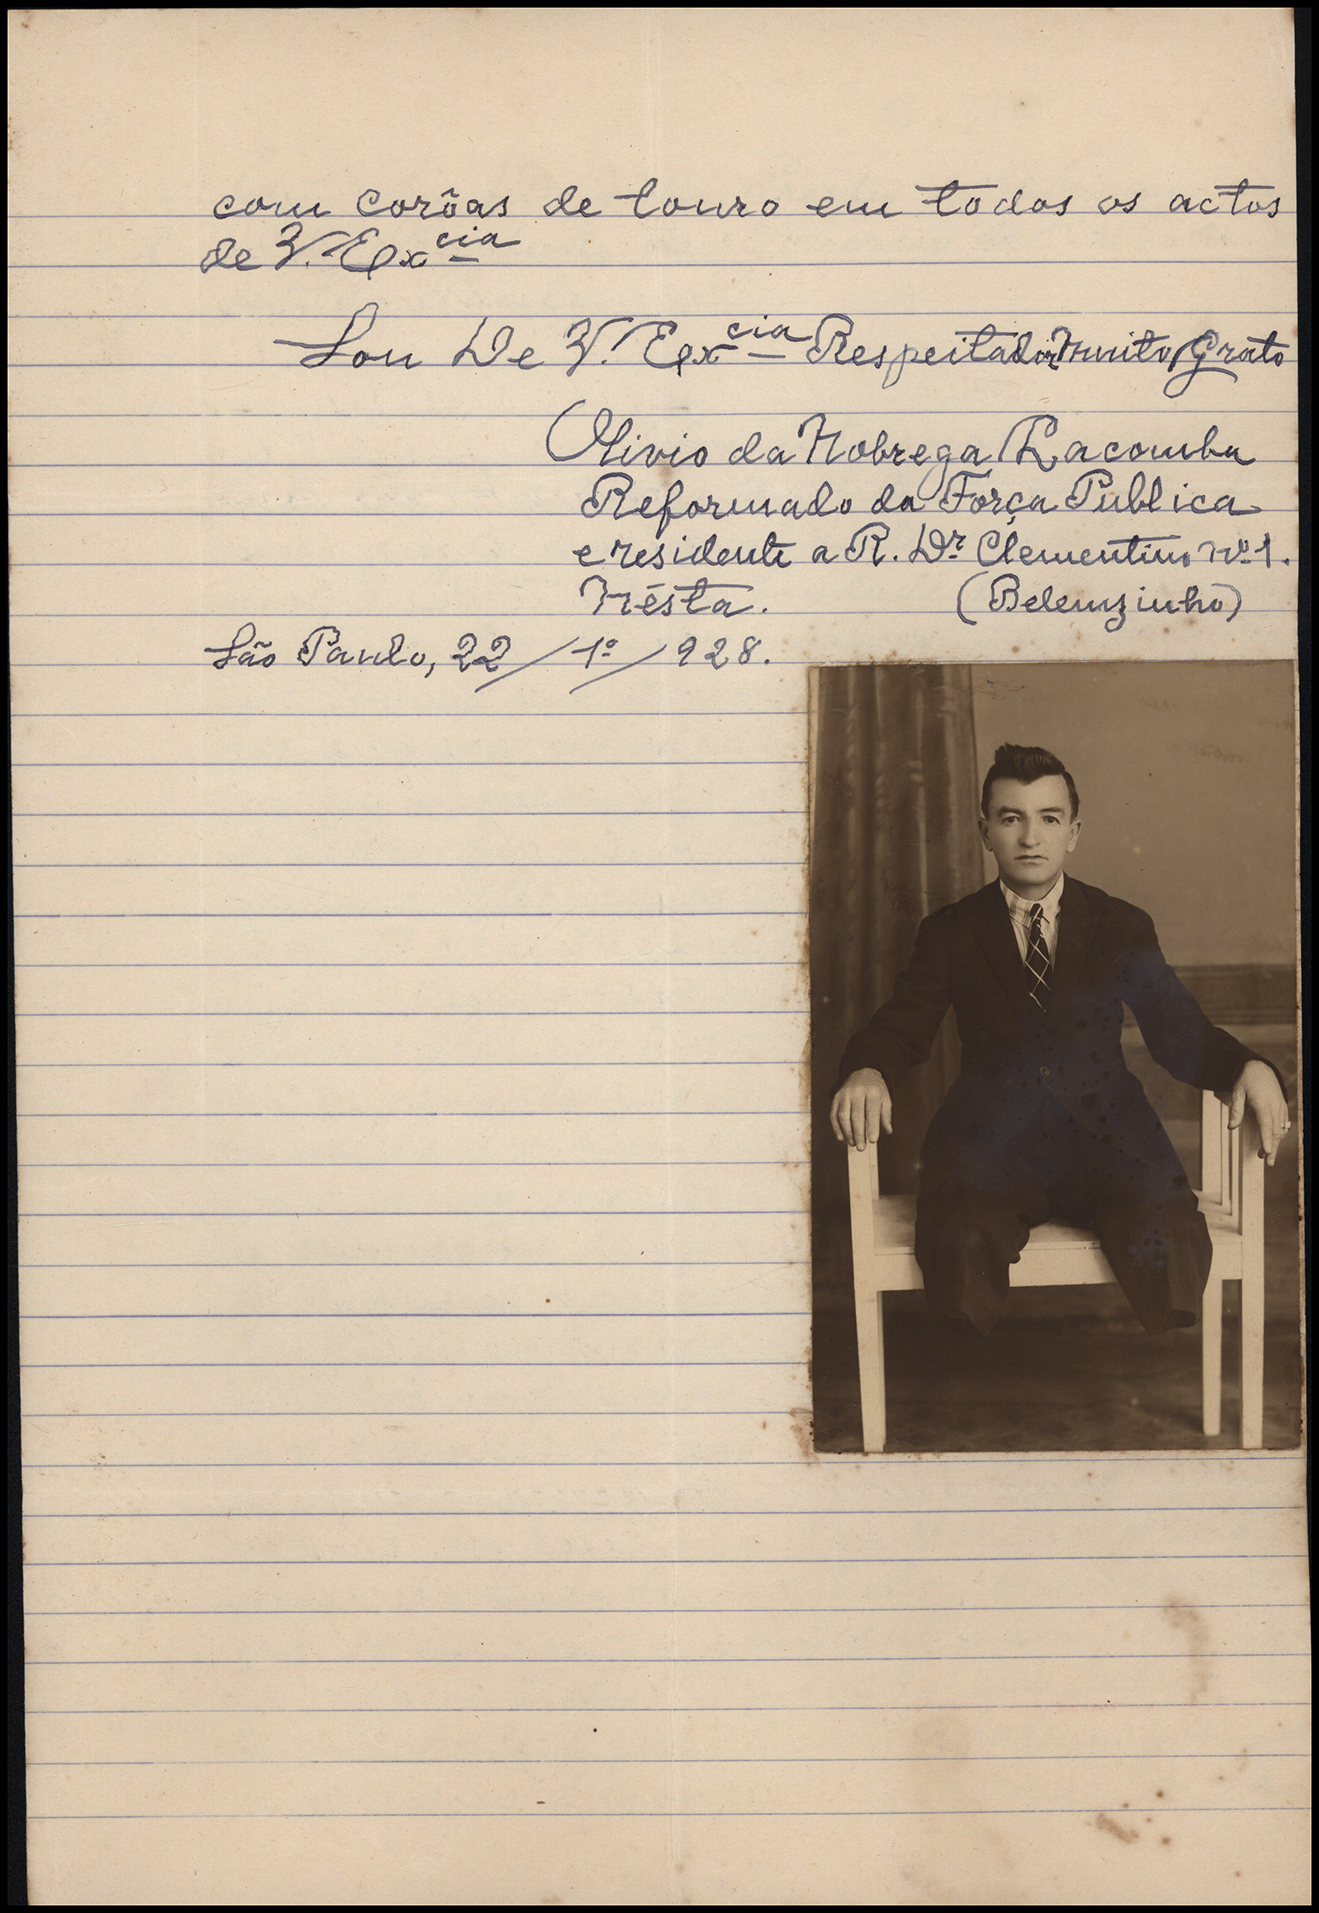 com corôas de louro em todos os actos
de V. Excia
Sou De V. Excia Respeitador Muito Grato
Olivio da Nobrega Racomba
Reformado da Força Publica
e residente a R. Dr. Clementino Nº 1.
Nésta. (Belemzinho)
São Paulo, 22/1º/928.